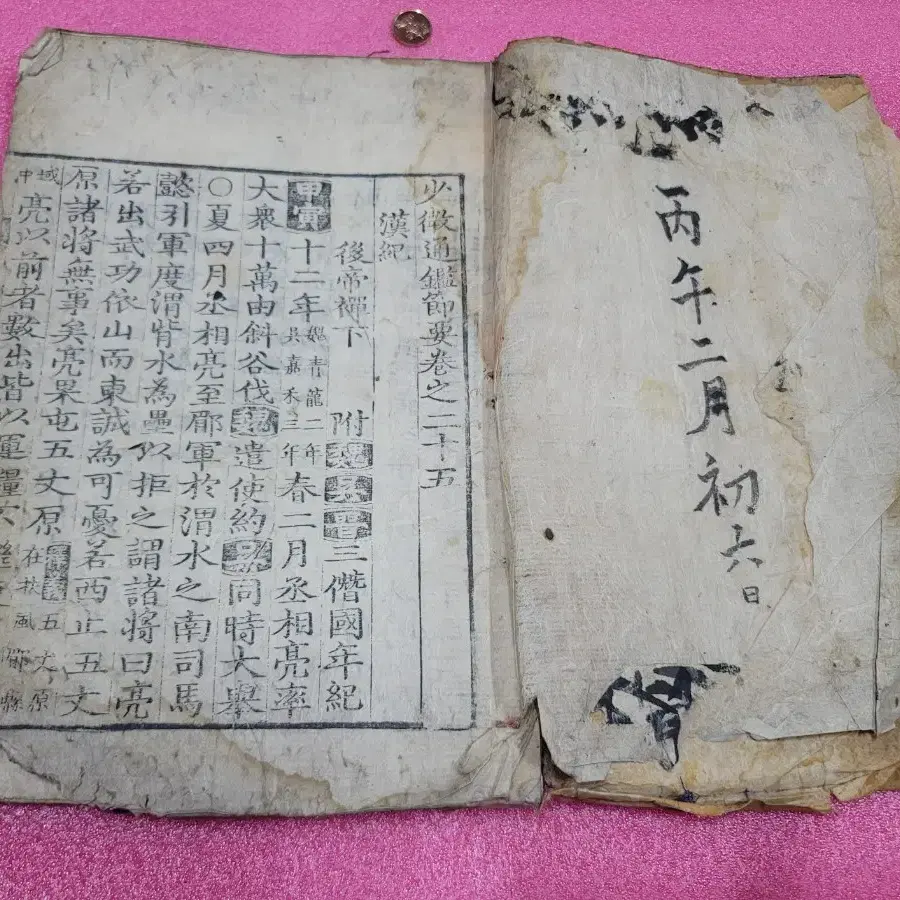 丙午二月初六日
少微通鑑節要卷之二十五
漢紀
後帝禪下 附魏吳晉三僭國年紀
甲寅十二年魏青龍二年吳嘉禾三年春二月丞相亮率
大衆十萬由斜谷伐魏遣使約吳同時大擧
○夏四月丞相亮至郿軍於渭水之南司馬
懿引軍度渭背水為壘以拒之謂諸將曰亮
若出武功依山而東誠為可憂若西止五丈
原諸將無事矣亮果屯五丈原五丈原在扶風郿縣
域中亮以前者數出皆以軍糧